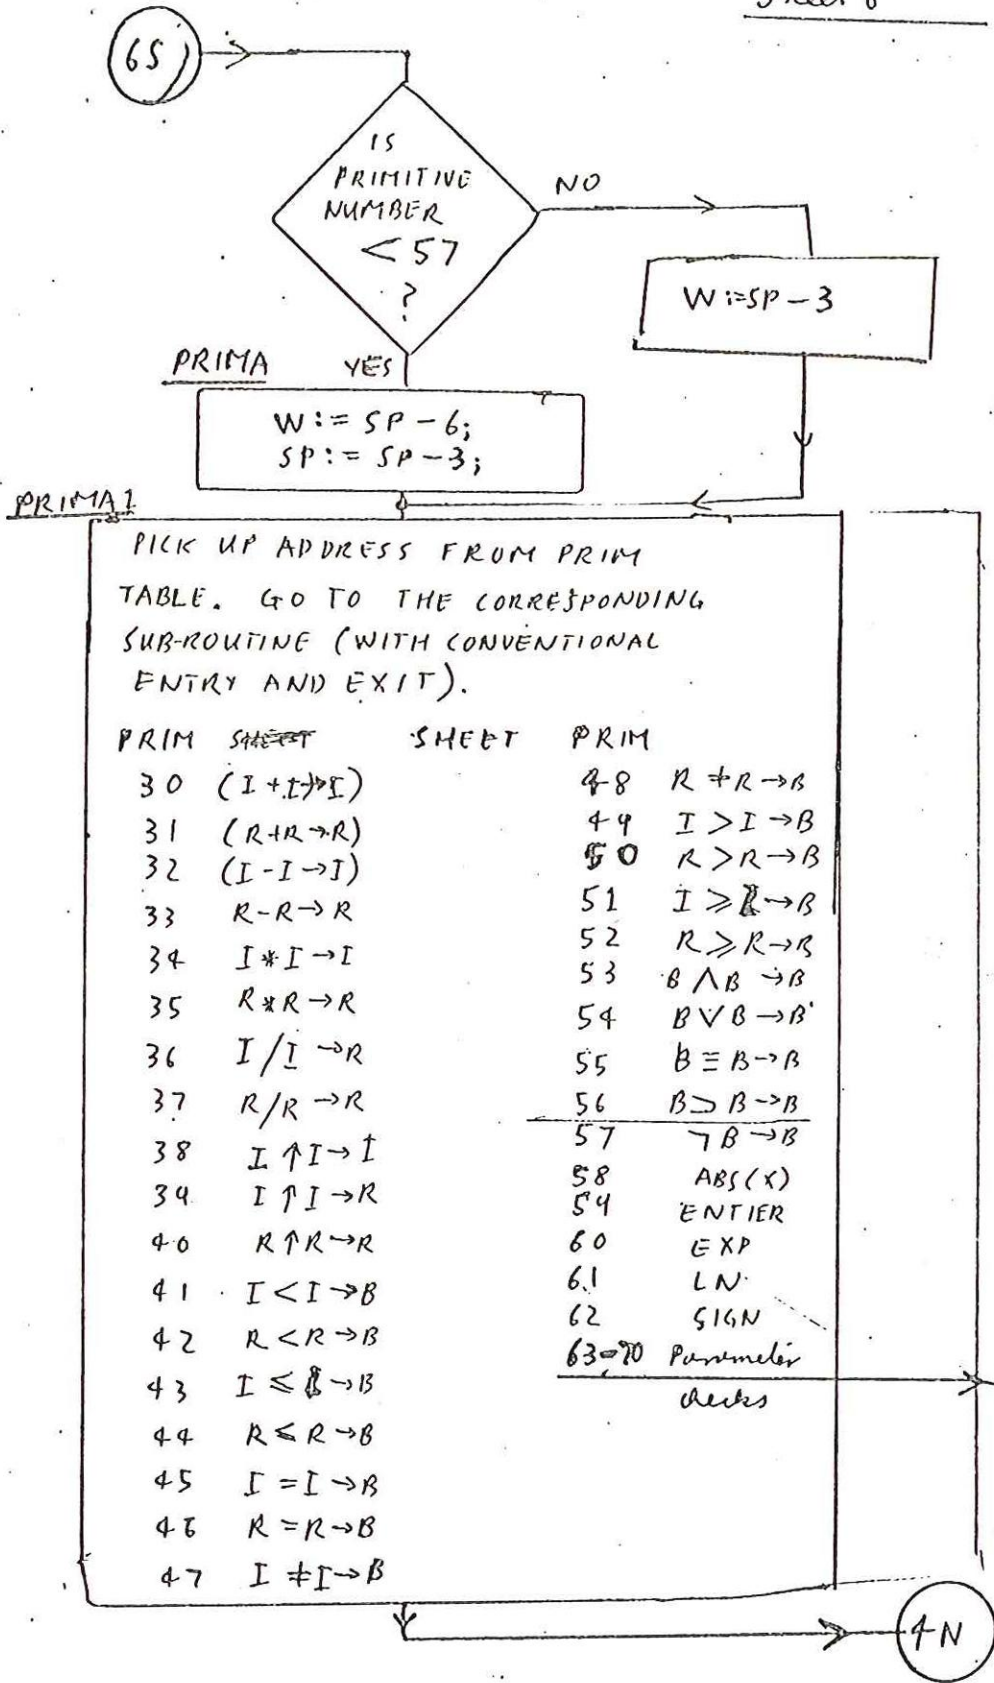 6S
IS
PRIMITIVE
NUMBER
< 57
?
NO
W:=SP-3
PRIMA
YES
W:= SP-6;
SP:= SP-3;
PRIMA1
PICK UP ADDRESS FROM PRIM
TABLE. GO TO THE CORRESPONDING
SUB-ROUTINE (WITH CONVENTIONAL
ENTRY AND EXIT).
PRIM SHEET SHEET PRIM
30 (I+I→I)
31 (R+R→R)
32 (I-I→I)
33 R-R→R
34 I*I→I
35 R*R→R
36 I/I→R
37 R/R→R
38 I↑I→I
39 I↑I→R
40 R↑R→R
41 I<I→B
42 R<R→B
43 I≤I→B
44 R≤R→B
45 I=I→B
46 R=R→B
47 I≠I→B
48 R≠R→B
49 I>I→B
50 R>R→B
51 I≥I→B
52 R≥R→B
53 B∧B→B
54 B∨B→B
55 B≡B→B
56 B⊃B→B
57 ¬B→B
58 ABS(X)
59 ENTIER
60 EXP
61 LN
62 SIGN
63-70 Parameter
checks
4N